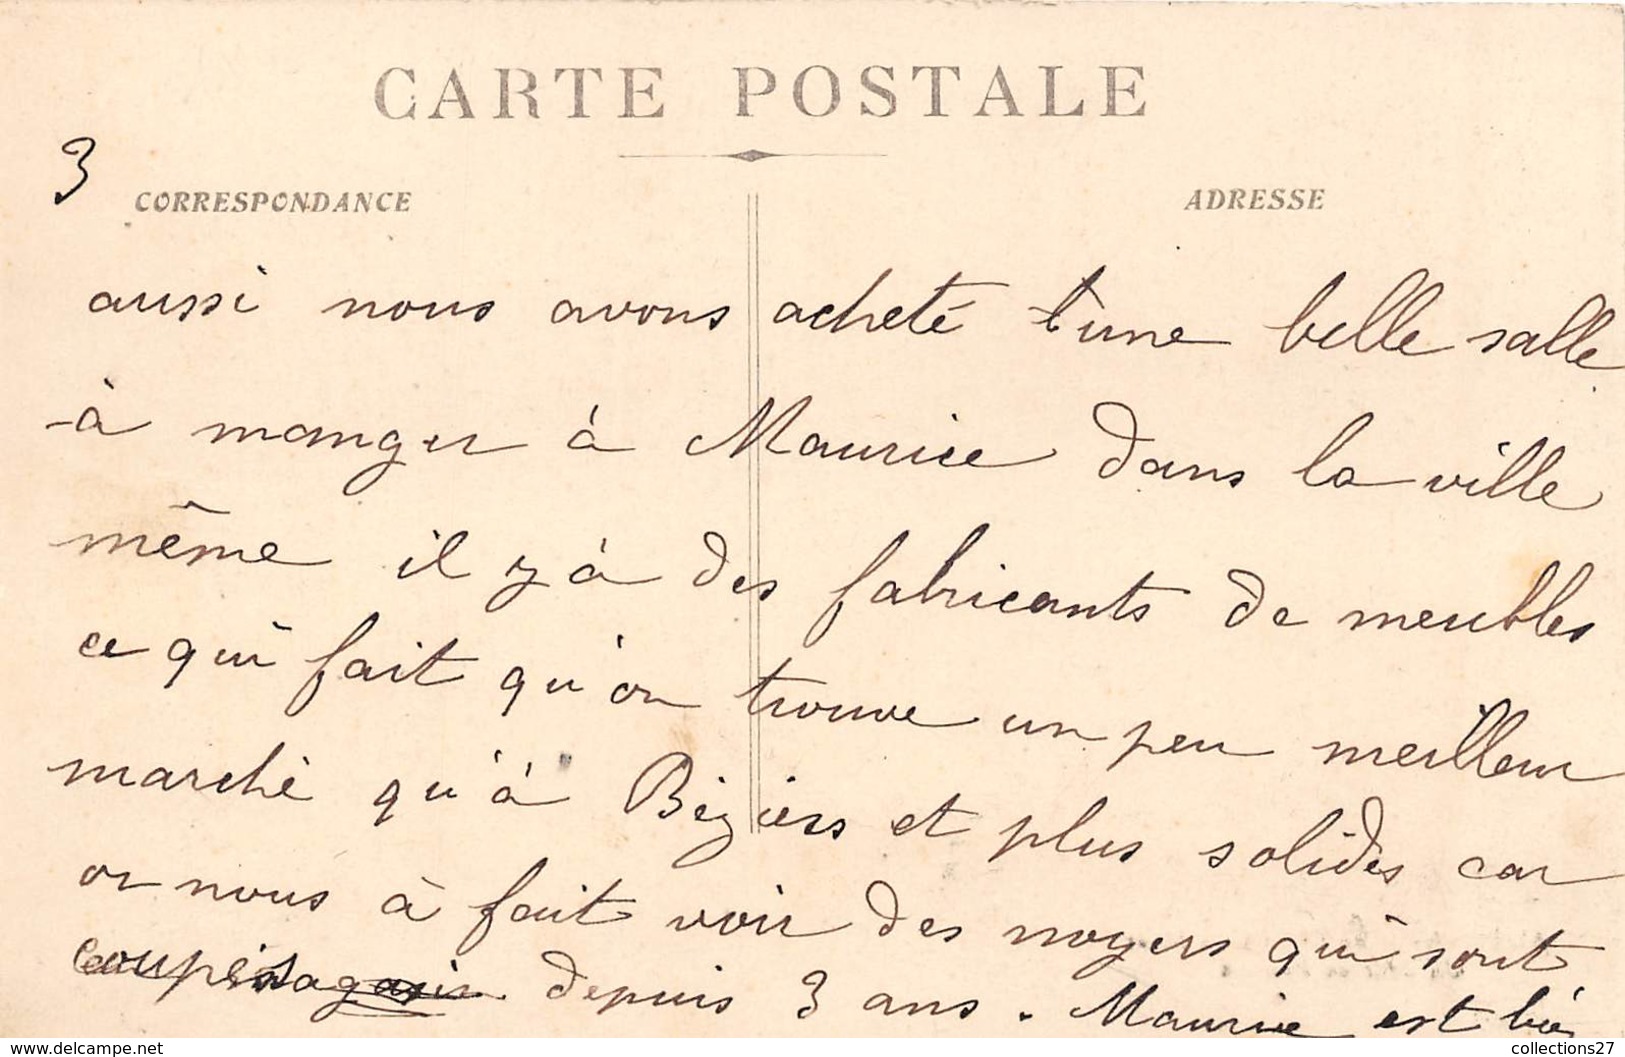 CARTE POSTALE
3
CORRESPONDANCE
ADRESSE
aussi nous avons acheté t'une belle salle
à manger à Maurice dans la ville
même il y à des fabricants de meubles
ce qui fait qu'on trouve un peu meilleur
marché qu'à Béziers et plus solides car
on nous à fait voir des noyers qui sont
coupés depuis 3 ans. Maurice est
collections27